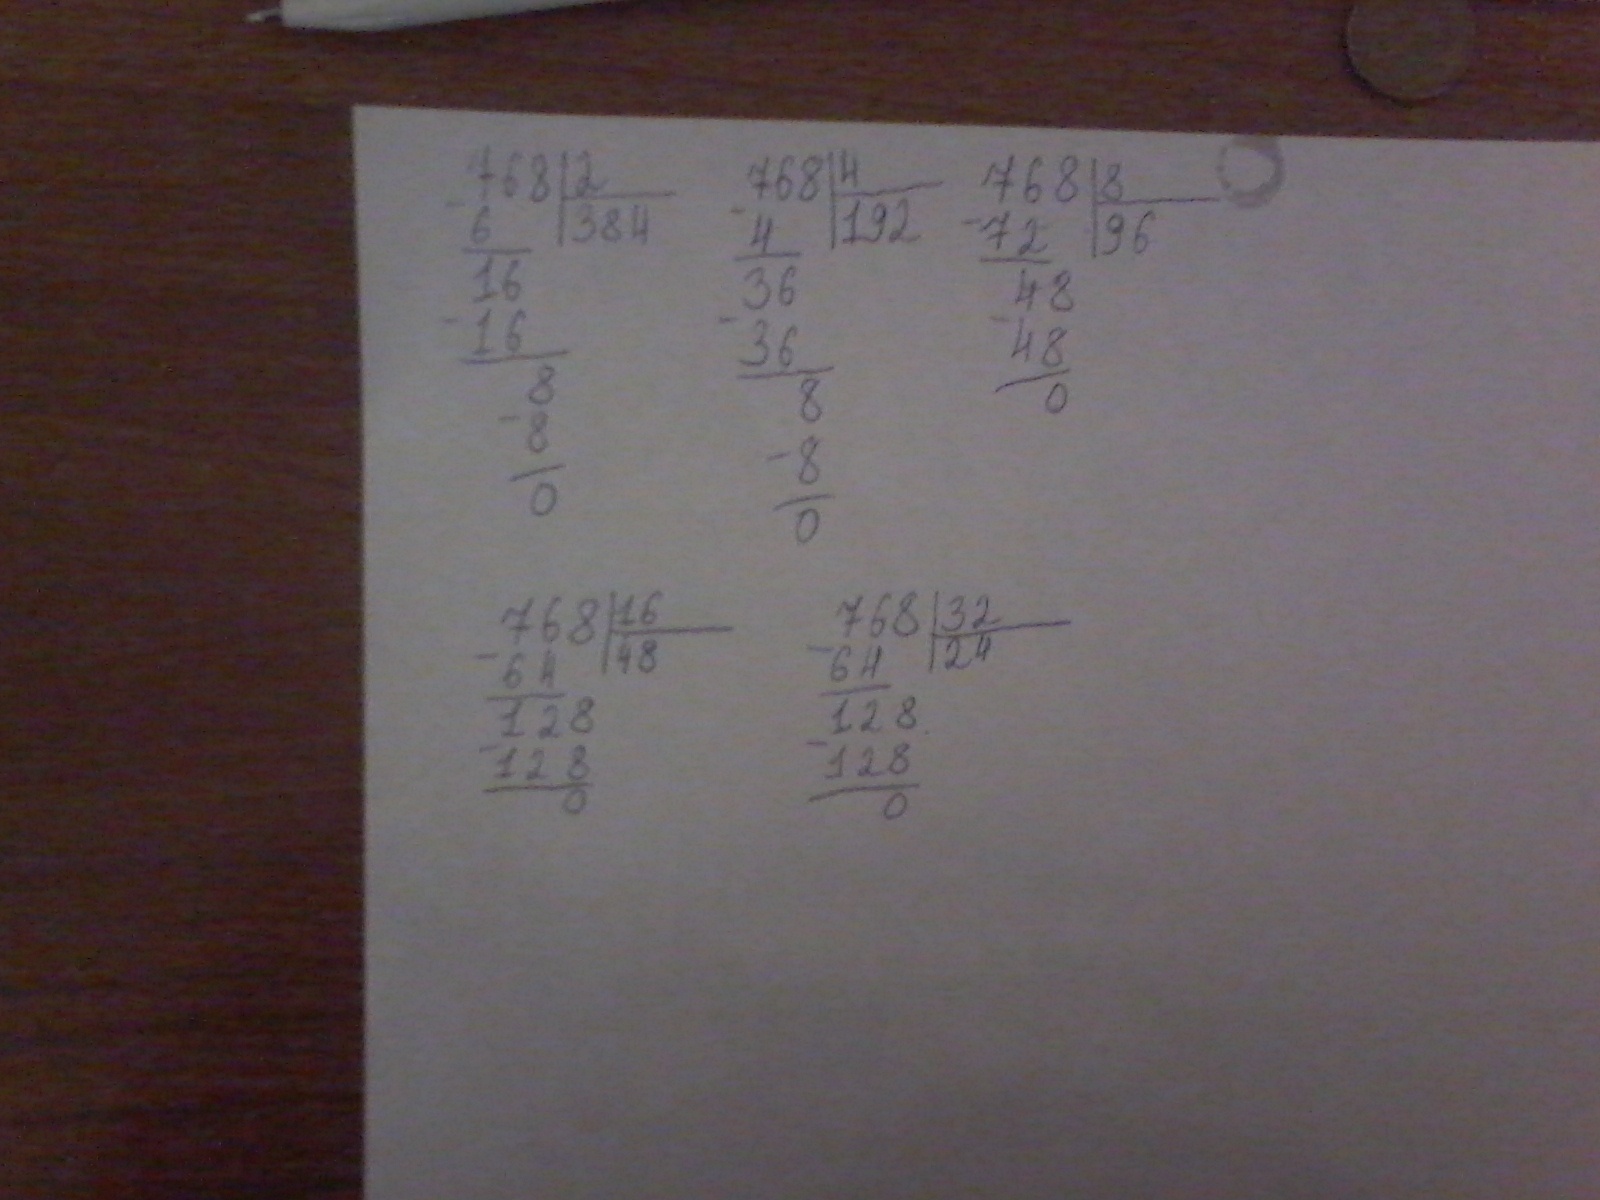 768|2
-6 |384
16
-16
8
-8
0
768|4
-4 |192
36
-36
8
-8
0
768|8
-72 |96
48
-48
0
768|16
-64 |48
128
-128
0
768|32
-64 |24
128
-128
0